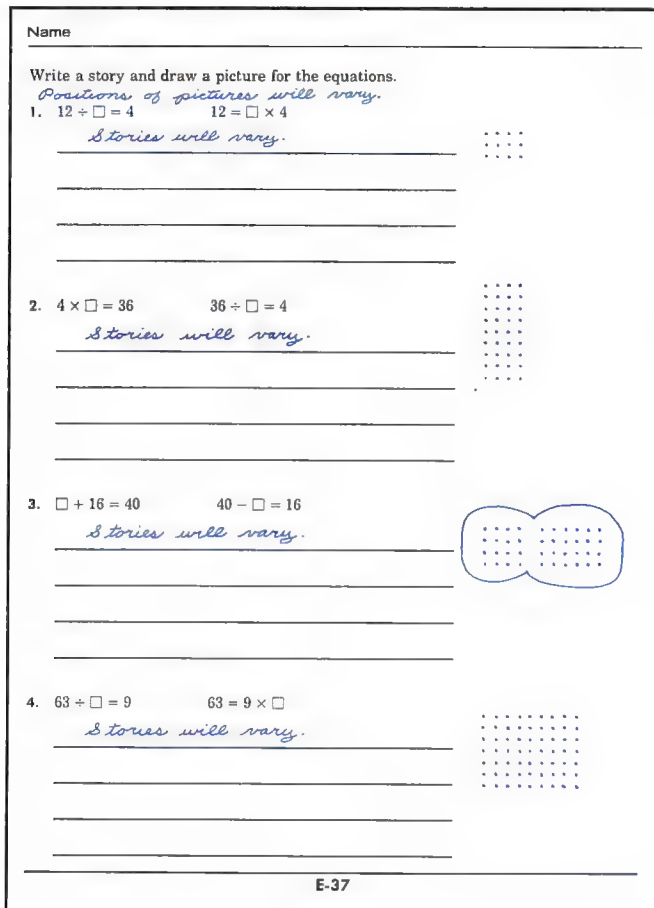 Name
Write a story and draw a picture for the equations.
Positions of pictures will vary.
1. 12 ÷ □ = 4 12 = □ × 4
Stories will vary.
2. 4 × □ = 36 36 ÷ □ = 4
Stories will vary.
3. □ + 16 = 40 40 − □ = 16
Stories will vary.
4. 63 ÷ □ = 9 63 = 9 × □
Stories will vary.
E-37